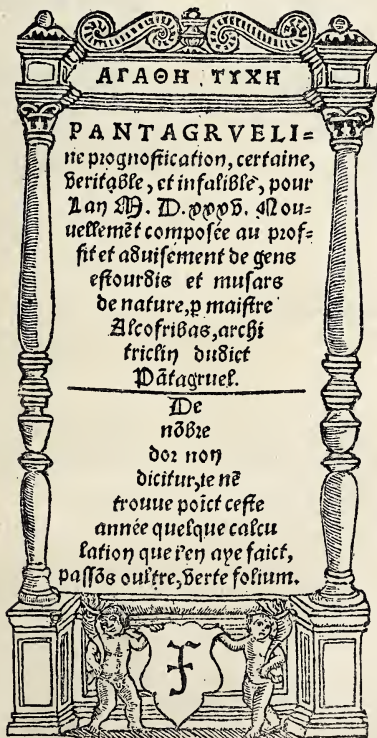 ΑΓΑΘΗ ΤΥΧΗ
PANTAGRVELI=
ne prognostication, certaine,
veritable, et infalible, pour
Lan M. D. xxxv. Nou=
uellemẽt composée au prof=
fit et aduisement de gens
estourdis et musars
de nature, p maistre
Alcofribas, archi
triclin dudict
Pãtagruel.
De
nõbre
dor non
dicitur, ie nẽ
trouue poīct ceste
année quelque calcu
lation que i'en aye faict,
passõs oultre, verte folium.
F